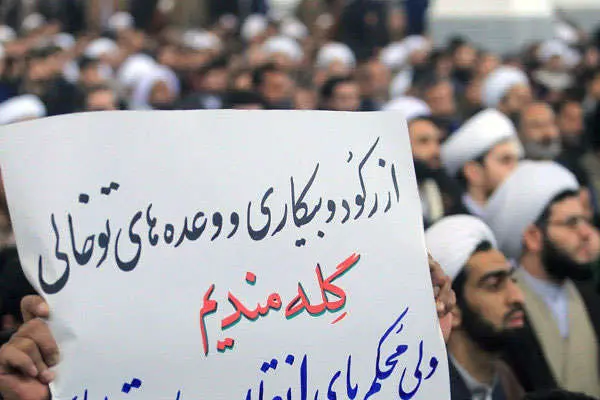 از رکُود و بیکاری و وعده های توخالی
گِله مندیم
ولی مُحکم پای انقلاب